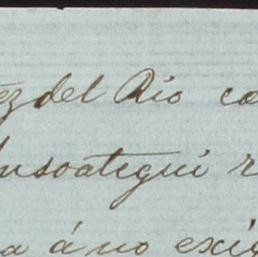 ez del Rio co
nsoategui r
a á no exig